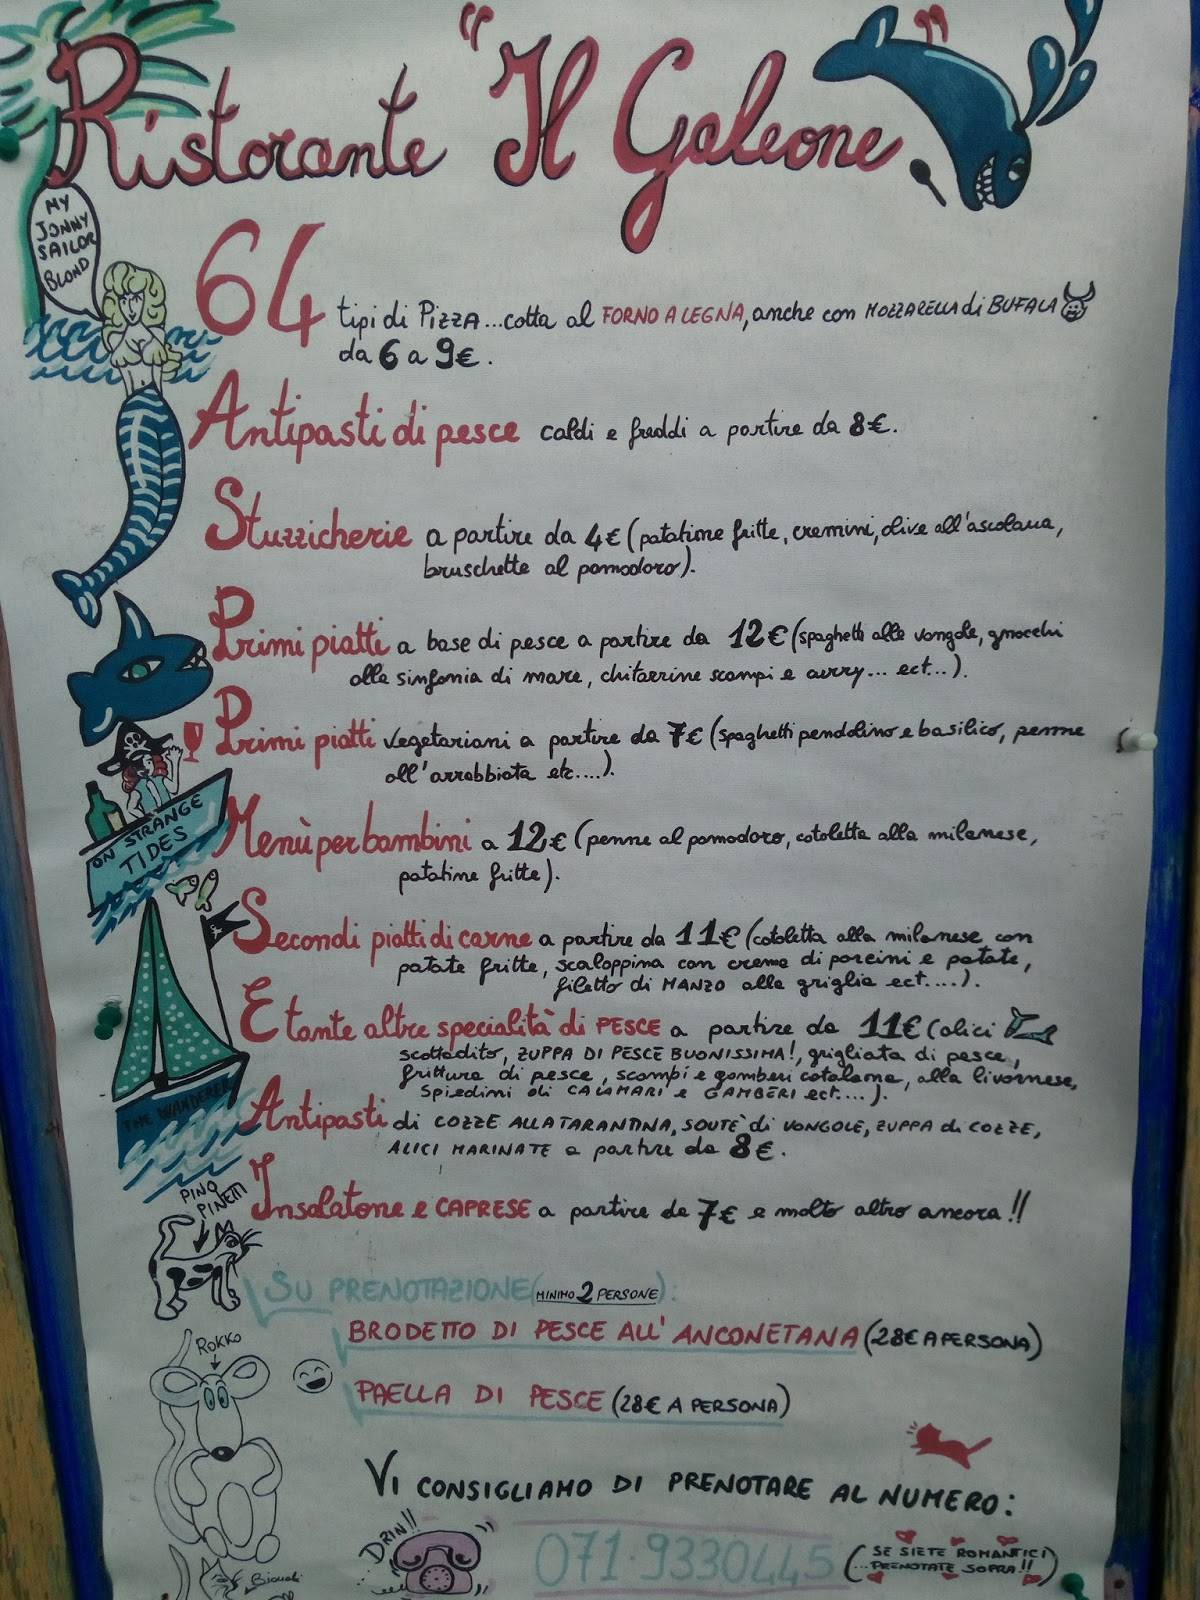 Ristorante "Il Galeone"
MY
JONNY
SAILOR
BLOND
64 tipi di PIZZA...cotta al FORNO A LEGNA, anche con MOZZARELLA di BUFALA
da 6 a 9€.
Antipasti di pesce caldi e freddi a partire da 8€.
Stuzzicherie a partire da 4€ (patatine fritte, cremini, olive all'ascolana,
bruschette al pomodoro).
Primi piatti a base di pesce a partire da 12€ (spaghetti alle vongole, gnocchi
alla sinfonia di mare, chitarrine scampi e curry... ect...).
Primi piatti vegetariani a partire da 7€ (spaghetti pendolino e basilico, penne
all'arrabbiata etc....).
ON STRANGE
TIDES
Menù per bambini a 12€ (penne al pomodoro, cotoletta alla milanese,
patatine fritte).
Secondi piatti di carne a partire da 11€ (cotoletta alla milanese con
patate fritte, scaloppina con crema di porcini e patate,
filetto di MANZO alla griglia ect....).
E tante altre specialità di PESCE a partire da 11€ (alici
scottadito, ZUPPA DI PESCE BUONISSIMA!, grigliata di pesce,
frittura di pesce, scampi e gamberi catalana, alla livornese,
Spiedini di CALAMARI e GAMBERI ect....).
THE WANDERER
Antipasti di COZZE ALLA TARANTINA, SOUTÈ di VONGOLE, ZUPPA di COZZE,
ALICI MARINATE a partire da 8€.
PINO
PINETTI
Insalatone e CAPRESE a partire da 7€ e molto altro ancora!!
SU PRENOTAZIONE (MINIMO 2 PERSONE):
BRODETTO DI PESCE ALL'ANCONETANA (28€ A PERSONA)
ROKKO
PAELLA DI PESCE (28€ A PERSONA)
VI CONSIGLIAMO DI PRENOTARE AL NUMERO:
DRIN!!
071·9330445
(SE SIETE ROMANTICI
...PRENOTATE SOPRA!!)